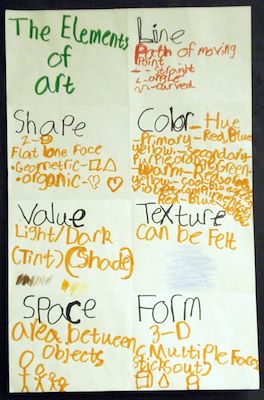 The Elements
of
art
Line
Path of moving
Point
- - Straight
angle
curved
Shape
2-D
Flat one Face
• Geometric-
• organic-
Color - Hue
- Primary - Red, Blue
yellow - Secondary
Purple, orange, Green
- warm - Red
Red-Blue
Value
Light/Dark
(Tint) (Shade)
Texture
Can be Felt
Space
area between
Objects
Form
3-D
Multiple Faces